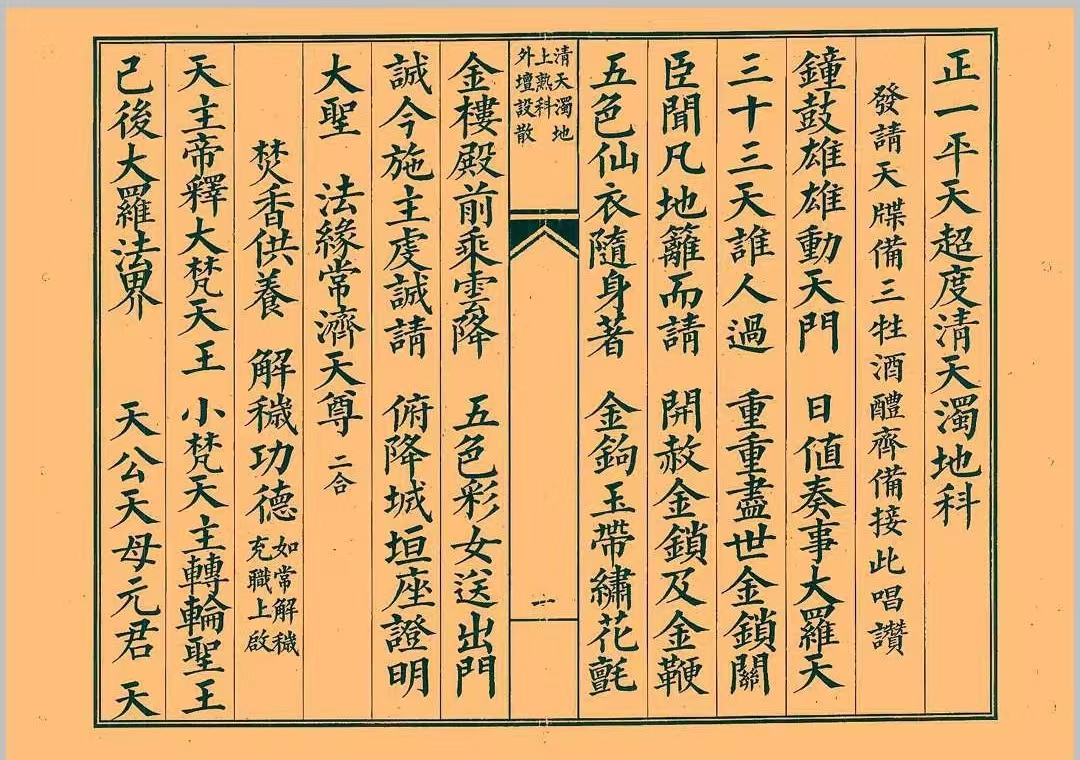 正一平天超度清天濁地科
發請天牒備三牲酒醴齊備接此唱讚
鐘鼓雄雄動天門　日值奏事大羅天
三十三天誰人過　重重盡世金鎖關
臣聞凡地籬而請　開赦金鎖及金鞭
五色仙衣隨身著　金鉤玉帶繡花氈
清天濁地
上熟科
外壇設散
一
金樓殿前乘雲降　五色彩女送出門
誠今施主虔誠請　俯降城垣座證明
大聖　法緣常濟天尊　二合
焚香供養　解穢功德　如常解穢
充職上啟
天主帝釋大梵天王　小梵天主轉輪聖王
己後大羅法界　天公天母元君　天